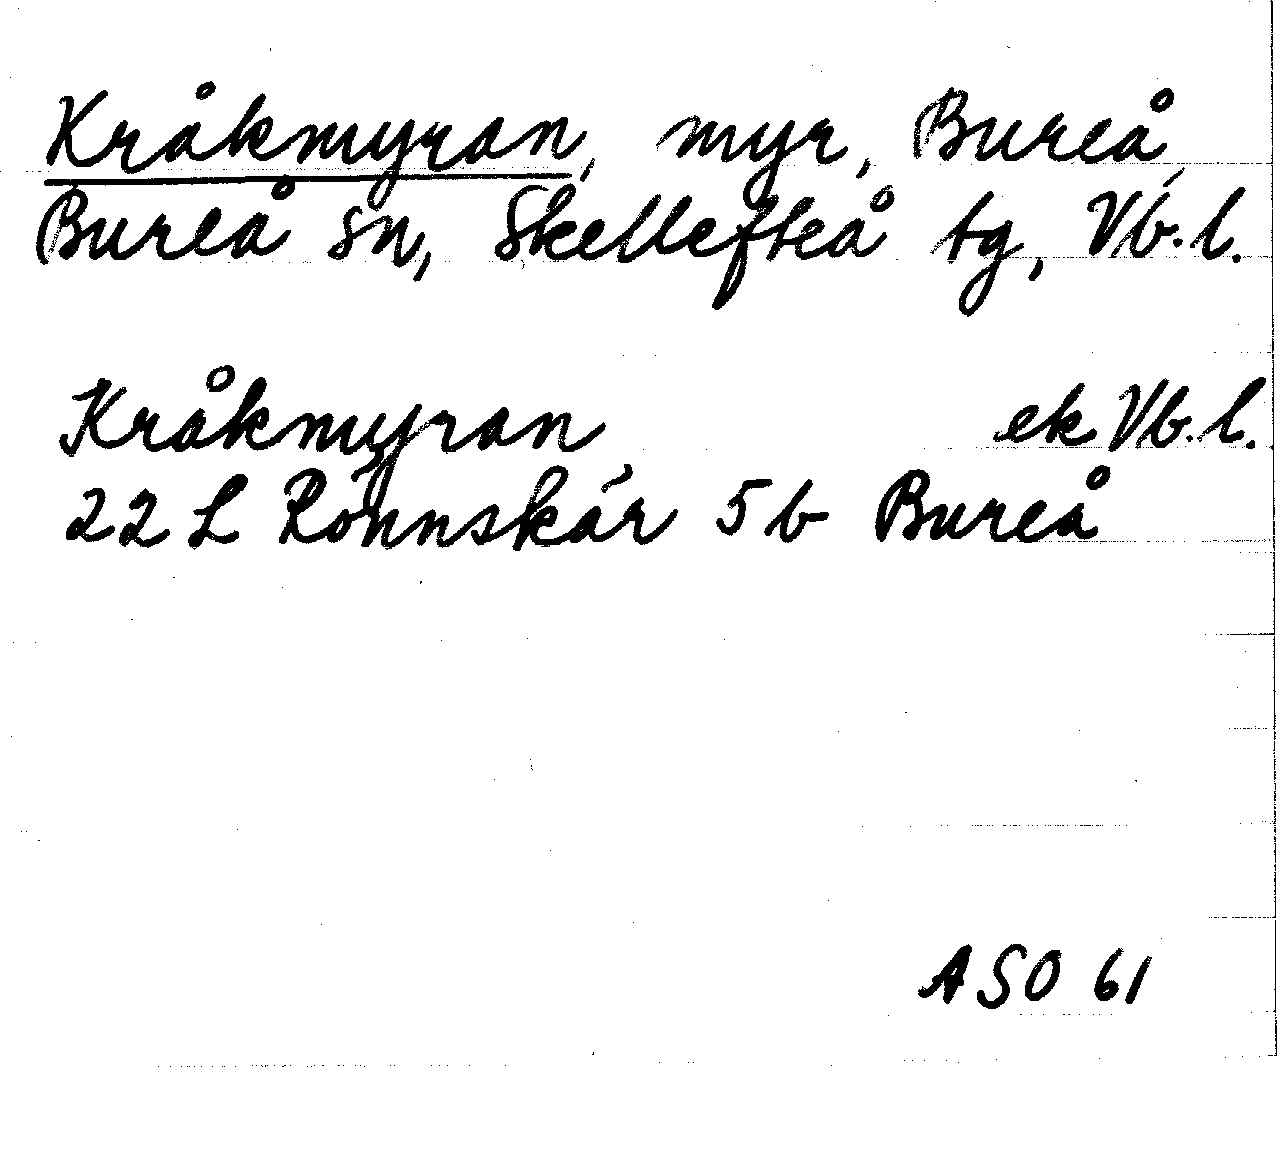 Kråkmyran, myr, Bureå,
Bureå sn, Skellefteå tg, Vb. l.
Kråkmyran ek Vb. l.
22 L Rönnskär 5 b Bureå
ASO 61